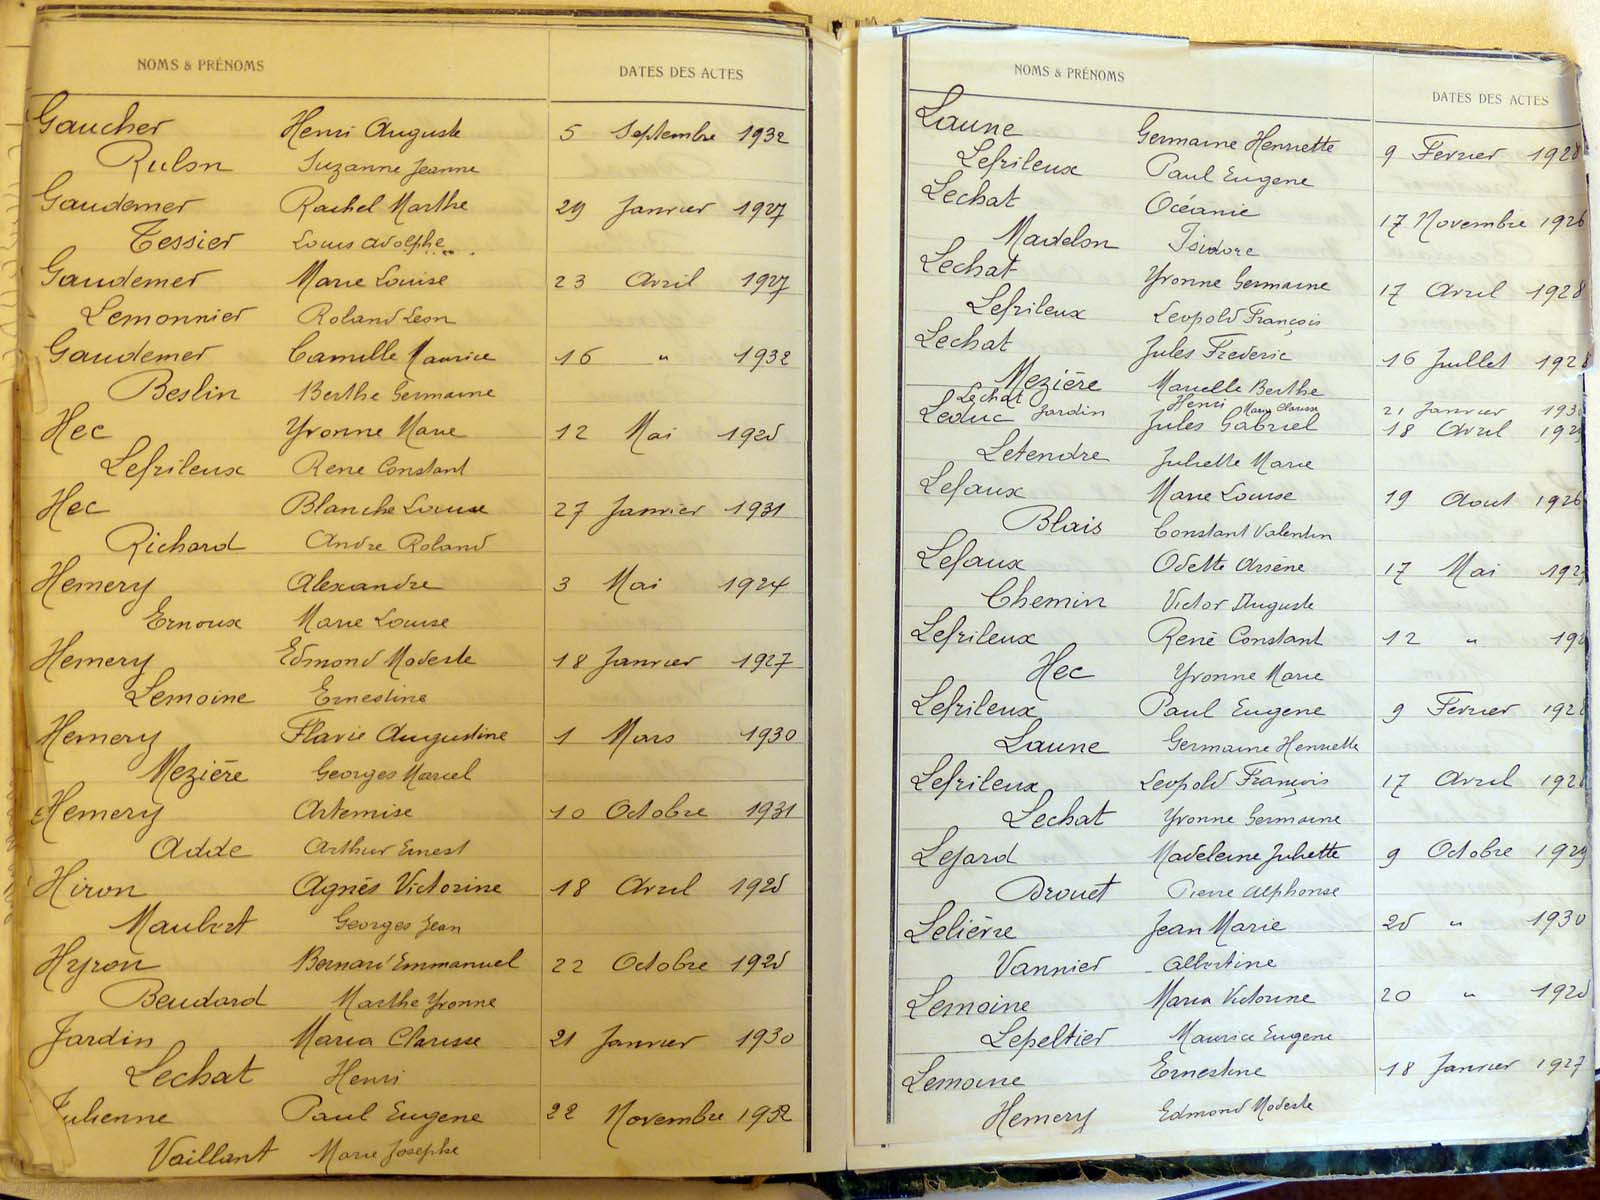 NOMS & PRÉNOMS DATES DES ACTES
Gaucher Henri Auguste 5 Septembre 1932
Rulon Suzanne Jeanne
Gaudemer Rachel Marthe 29 Janvier 1927
Tessier Louis Adolphe
Gaudemer Marie Louise 23 Avril 1927
Lemonnier Roland Leon
Gaudemer Camille Maurice 16 " 1932
Beslin Berthe Germaine
Hec Yvonne Marie 12 Mai 1925
Lefrileux Rene Constant
Hec Blanche Louise 27 Janvier 1931
Richard Andre Roland
Hemery Alexandre 3 Mai 1924
Ernoux Marie Louise
Hemery Edmond Modeste 18 Janvier 1927
Lemoine Ernestine
Hemery Flavie Augustine 1 Mars 1930
Mezière Georges Marcel
Hemery Artemise 10 Octobre 1931
Adde Arthur Ernest
Hiron Agnès Victorine 18 Avril 1925
Maubert Georges Jean
Hyron Bernard Emmanuel 22 Octobre 1925
Beudard Marthe Yvonne
Jardin Maria Clarisse 21 Janvier 1930
Lechat Henri
Julienne Paul Eugene 22 Novembre 1932
Vaillant Marie Josephe
NOMS & PRÉNOMS DATES DES ACTES
Laune Germaine Henriette 9 Fevrier 1928
Lefrileux Paul Eugene
Lechat Océanie 17 Novembre 1926
Madelon Isidore
Lechat Yvonne Germaine 17 Avril 1928
Lefrileux Leopold François
Lechat Jules Frederic 16 Juillet 1928
Mezière Marcelle Berthe
Lechat Jardin Henri Maria Clarisse 21 Janvier
Leduc Jules Gabriel 18 Avril
Letendre Juliette Marie
Lefaux Marie Louise 19 Aout 1926
Blais Constant Valentin
Lefaux Odette Arsène 17 Mai
Chemin Victor Auguste
Lefrileux René Constant 12 "
Hec Yvonne Marie
Lefrileux Paul Eugene 9 Fevrier 1928
Laune Germaine Henriette
Lefrileux Leopold François 17 Avril 1928
Lechat Yvonne Germaine
Lejard Madeleine Juliette 9 Octobre 1929
Drouet Pierre Alphonse
Lelièvre Jean Marie 25 " 1930
Vannier Albertine
Lemoine Maria Victorine 20 " 1925
Lepeltier Maurice Eugene
Lemoine Ernestine 18 Janvier 1927
Hemery Edmond Modeste